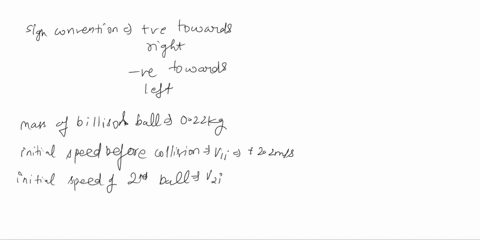 sign convention ⇒ +ve towards
right
-ve towards
left
mass of billiard ball ⇒ 0.22kg
initial speed before collision ⇒ V1i ⇒ +2.2m/s
initial speed of 2nd ball ⇒ V2i